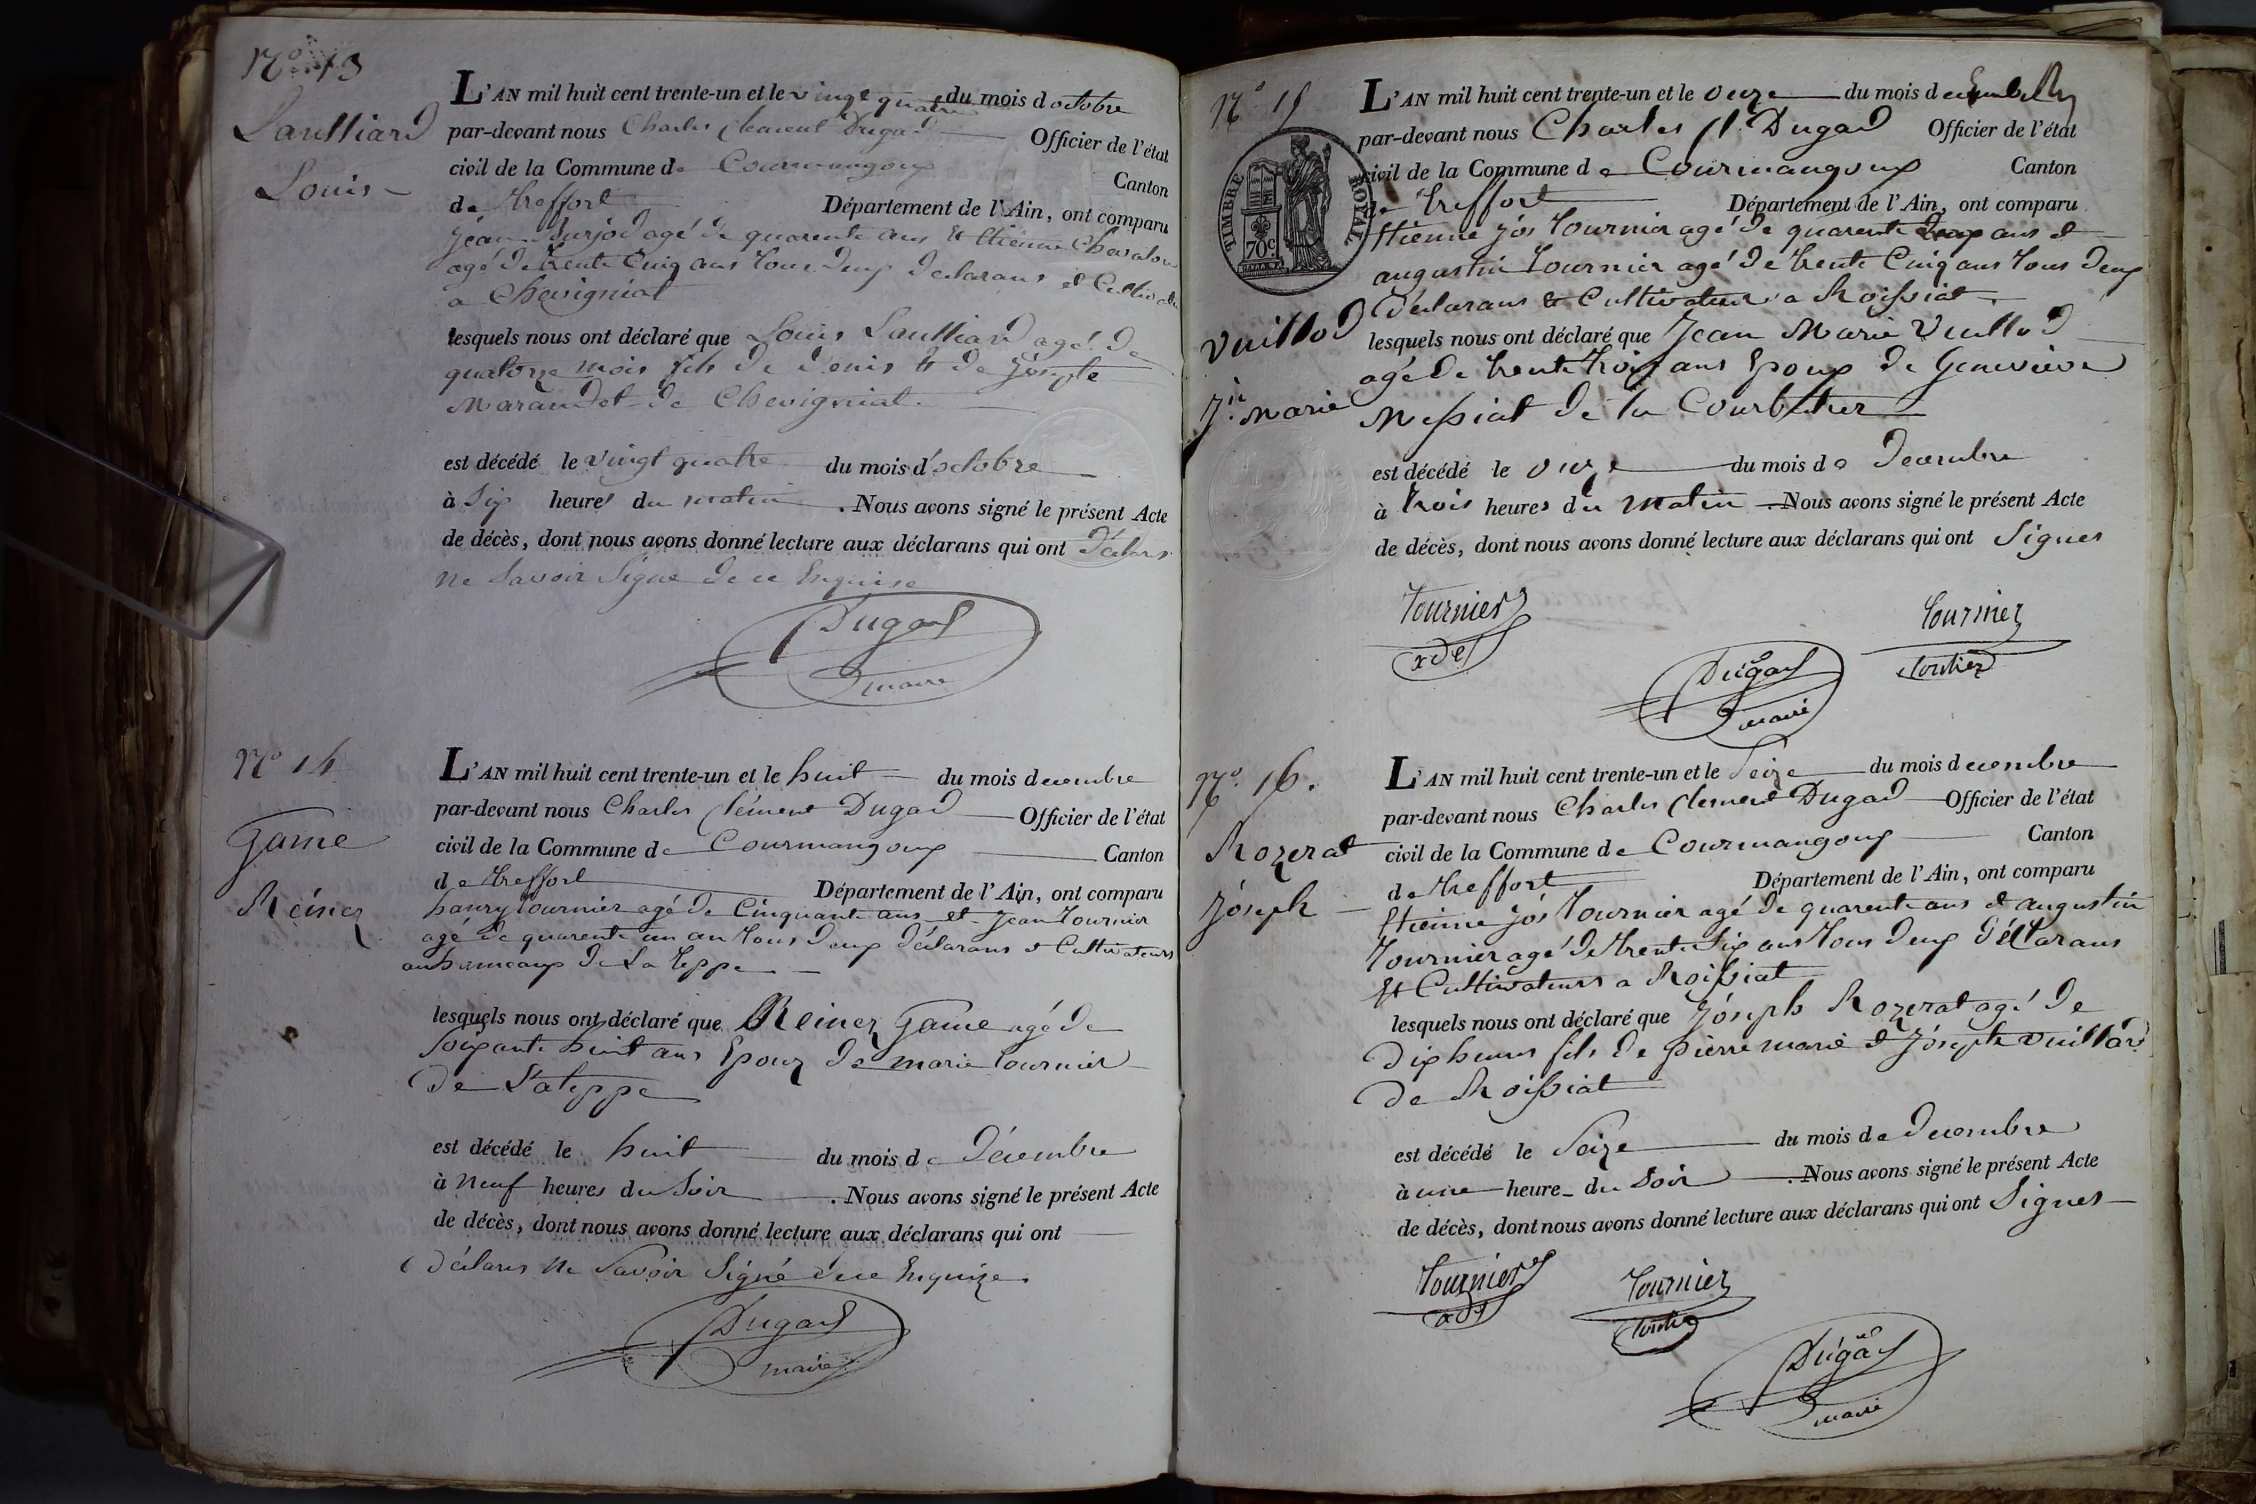 N° 13
Laulliard
Louis
L'AN mil huit cent trente-un et le vingt quatre du mois d octobre
par-devant nous Charles Clement Dugad Officier de l'état
civil de la Commune de Courmangoux Canton
de treffort Département de l'Ain, ont comparu
Jean agé de quarente ans Et Etienne
agé de trente Cinq ans tous deux declarans et
a Chevigniat
lesquels nous ont déclaré que Louis Laulliard agé de
quatorze mois fils de Denis & de Josepte
Marandet de Chevigniat.
est décédé le vingt quatre du mois d'octobre
à Six heures du matin . Nous avons signé le présent Acte
de décès, dont nous avons donné lecture aux déclarans qui ont
ne Savoir Signé de ce Enquise
Dugad
maire
N° 14
Game
Reinez
L'AN mil huit cent trente-un et le huit du mois decembre
par-devant nous Charles Clément Dugad Officier de l'état
civil de la Commune de Courmangoux Canton
de treffort Département de l'Ain, ont comparu
hanry tournier agé de Cinquante ans et Jean tournier
agé de quarente un an tous deux déclarans & Cultivateurs
au hameaux de La teppe
lesquels nous ont déclaré que Reinez Game agé de
Soixante huit ans Epoux de marie tournier
de Lateppe
est décédé le huit du mois de Décembre
à neuf heures du Soir . Nous avons signé le présent Acte
de décès, dont nous avons donné lecture aux déclarans qui ont
Ne Savoir Signé de ce Enquize.
Dugad
maire
N° 15
TIMBRE ROYAL
70c
Vuillod
Jn marie
L'AN mil huit cent trente-un et le onze du mois d
par-devant nous Charles Cl. Dugad Officier de l'état
civil de la Commune de Courmangoux Canton
de treffort Département de l'Ain, ont comparu
Etienne Jos tournier agé de quarente ans et
augustin tournier agé de trente Cinq ans tous deux
Déclarans & Cultivateurs a Roissiat.
lesquels nous ont déclaré que Jean Marie Vuillod
agé de trente trois ans Epoux de Genevieve
Messiat de la
est décédé le onze du mois de Decembre
à trois heures du matin . Nous avons signé le présent Acte
de décès, dont nous avons donné lecture aux déclarans qui ont Signes
Tournier
xde
Tournier
Dugad
maire
N° 16.
Rozerat
Joseph
L'AN mil huit cent trente-un et le Seize du mois decembre
par-devant nous Charles Clement Dugad Officier de l'état
civil de la Commune de Courmangoux Canton
de treffort Département de l'Ain, ont comparu
Etienne Jos tournier agé de quarente ans et augustin
tournier agé de trente Six ans tous deux déclarans
Et Cultivateurs a Roissiat
lesquels nous ont déclaré que Joseph Rozerat agé de
Dix heures fils de Pierre marie & Josepte Vuillard
de Roissiat
est décédé le Seize du mois de Decembre
à une heure du Soir . Nous avons signé le présent Acte
de décès, dont nous avons donné lecture aux déclarans qui ont Signes
Tournier
Tournier
Dugad
maire